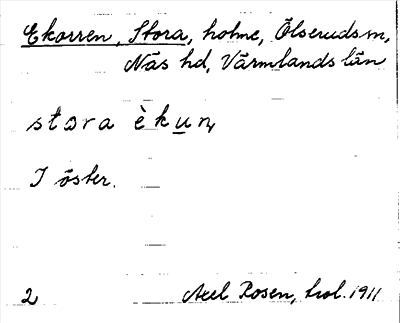 Ekorren, Stora, holme, Ölseruds sn,
Näs hd, Värmlands län
stora èkuṇ
I öster.
2 Axel Rosen, trol. 1911